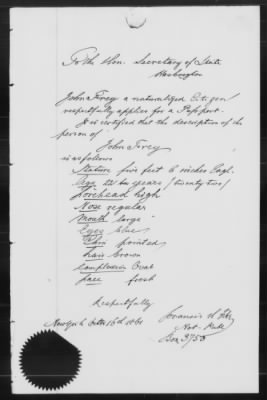 To the Hon. Secretary of State
Washington
John Frey a naturalized Citizen
respectfully applies for a Passport.
It is certified that the description of the
person of
John Frey
is as follows
Stature five feet 6 inches Engl.
Age 22 years (twenty two)
Forehead high
Nose regular
Mouth large
Eyes blue
Chin pointed
Hair brown
Complexion Oval
Face fresh
Respectfully
New York 16th 1861
Francis
Not. Publ.
Box 3758